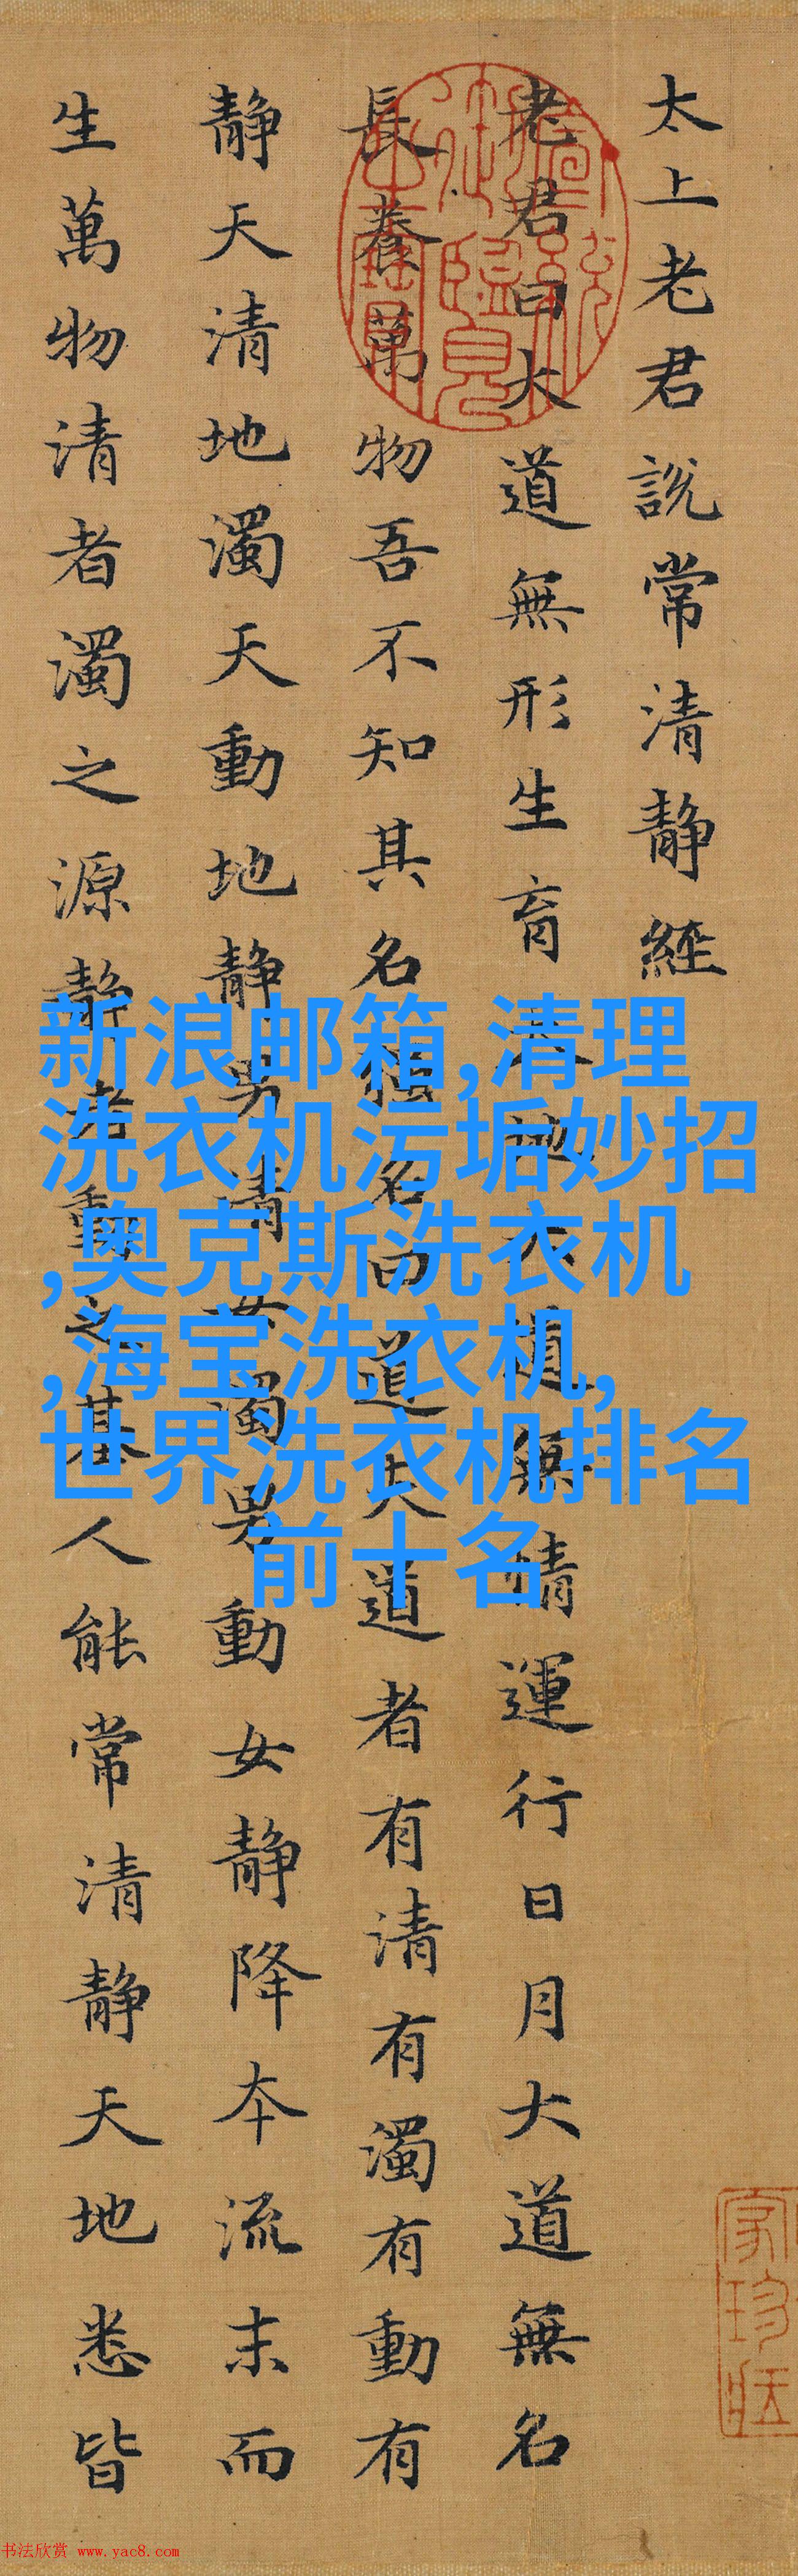 太上老君說常清靜經
老君曰大道無形生育天地大道無情運行日月大道無名
長養萬物吾不知其名強名曰道夫道者有清有濁有動有
靜天清地濁天動地靜男清女濁男動女靜降本流末而
生萬物清者濁之源靜者動之基人能常清靜天地悉皆
新浪邮箱,清理
洗衣机污垢妙招
,奥克斯洗衣机
,海宝洗衣机,
世界洗衣机排名
前十名
书法欣赏 www.yac8.com